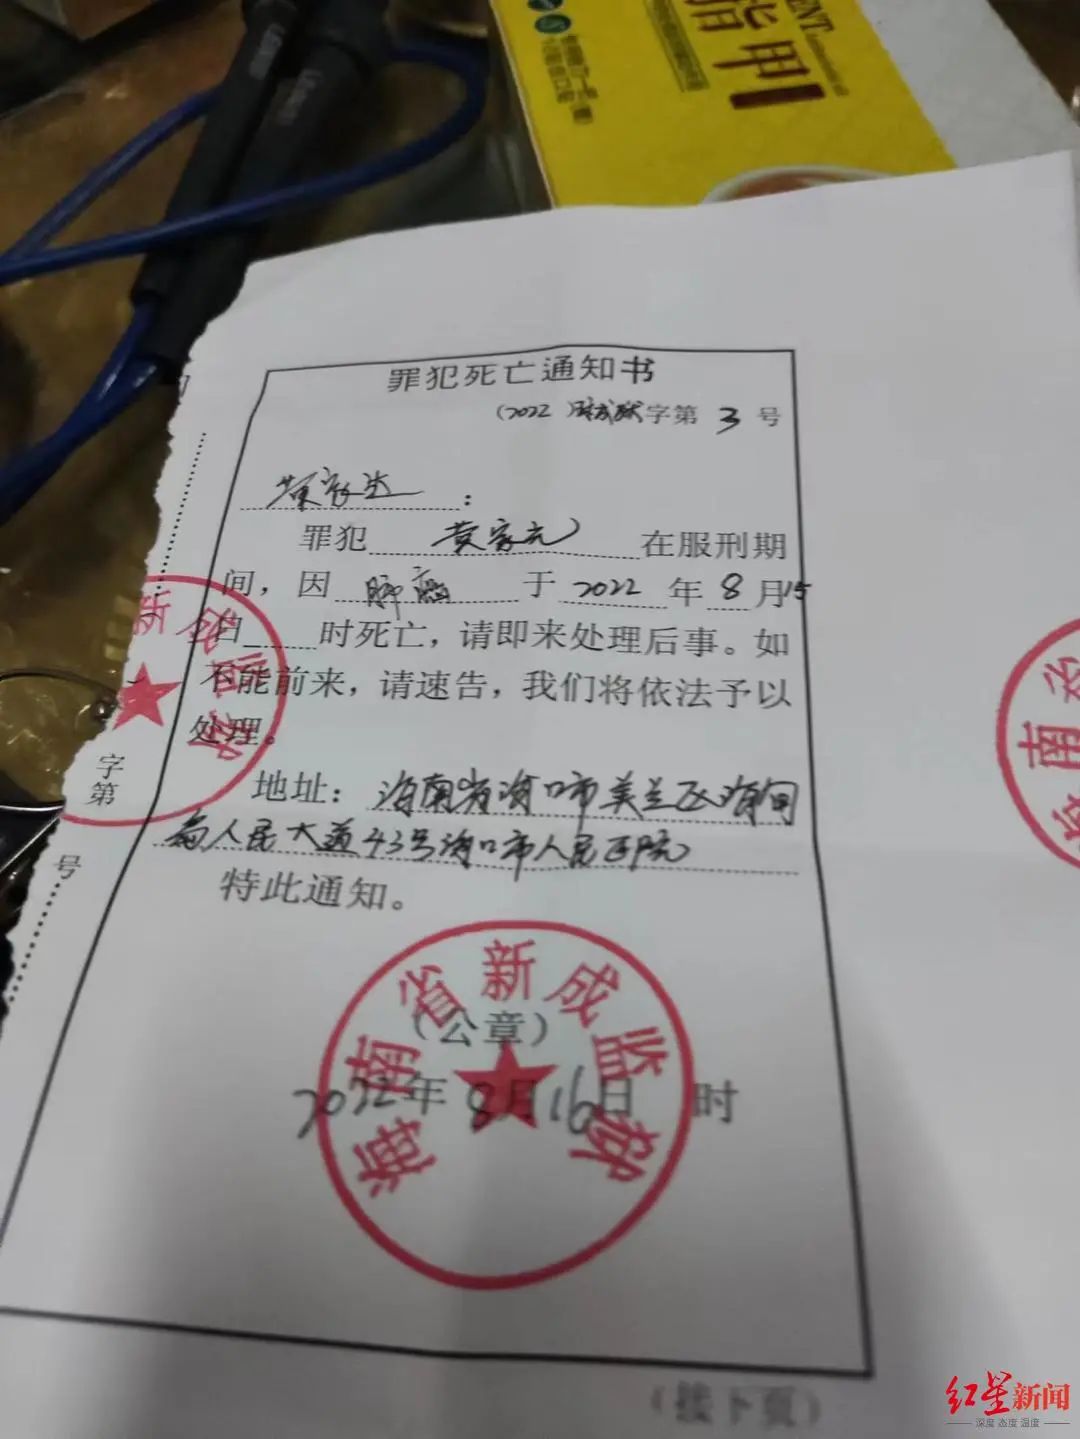 指甲
罪犯死亡通知书
(2022)琼新成狱字第3号
黄家达:
罪犯 黄家光 在服刑期
间,因 肺癌 于 2022 年 8 月 15
日 时死亡,请即来处理后事。如
不能前来,请速告,我们将依法予以
处理。
字第
地址:海南省海口市美兰区海甸
岛人民大道43号海口市人民医院
号
特此通知。
海南省新成监狱
(公章)
2022年8月16日 时
(接下页)
红星新闻
深度 态度 温度